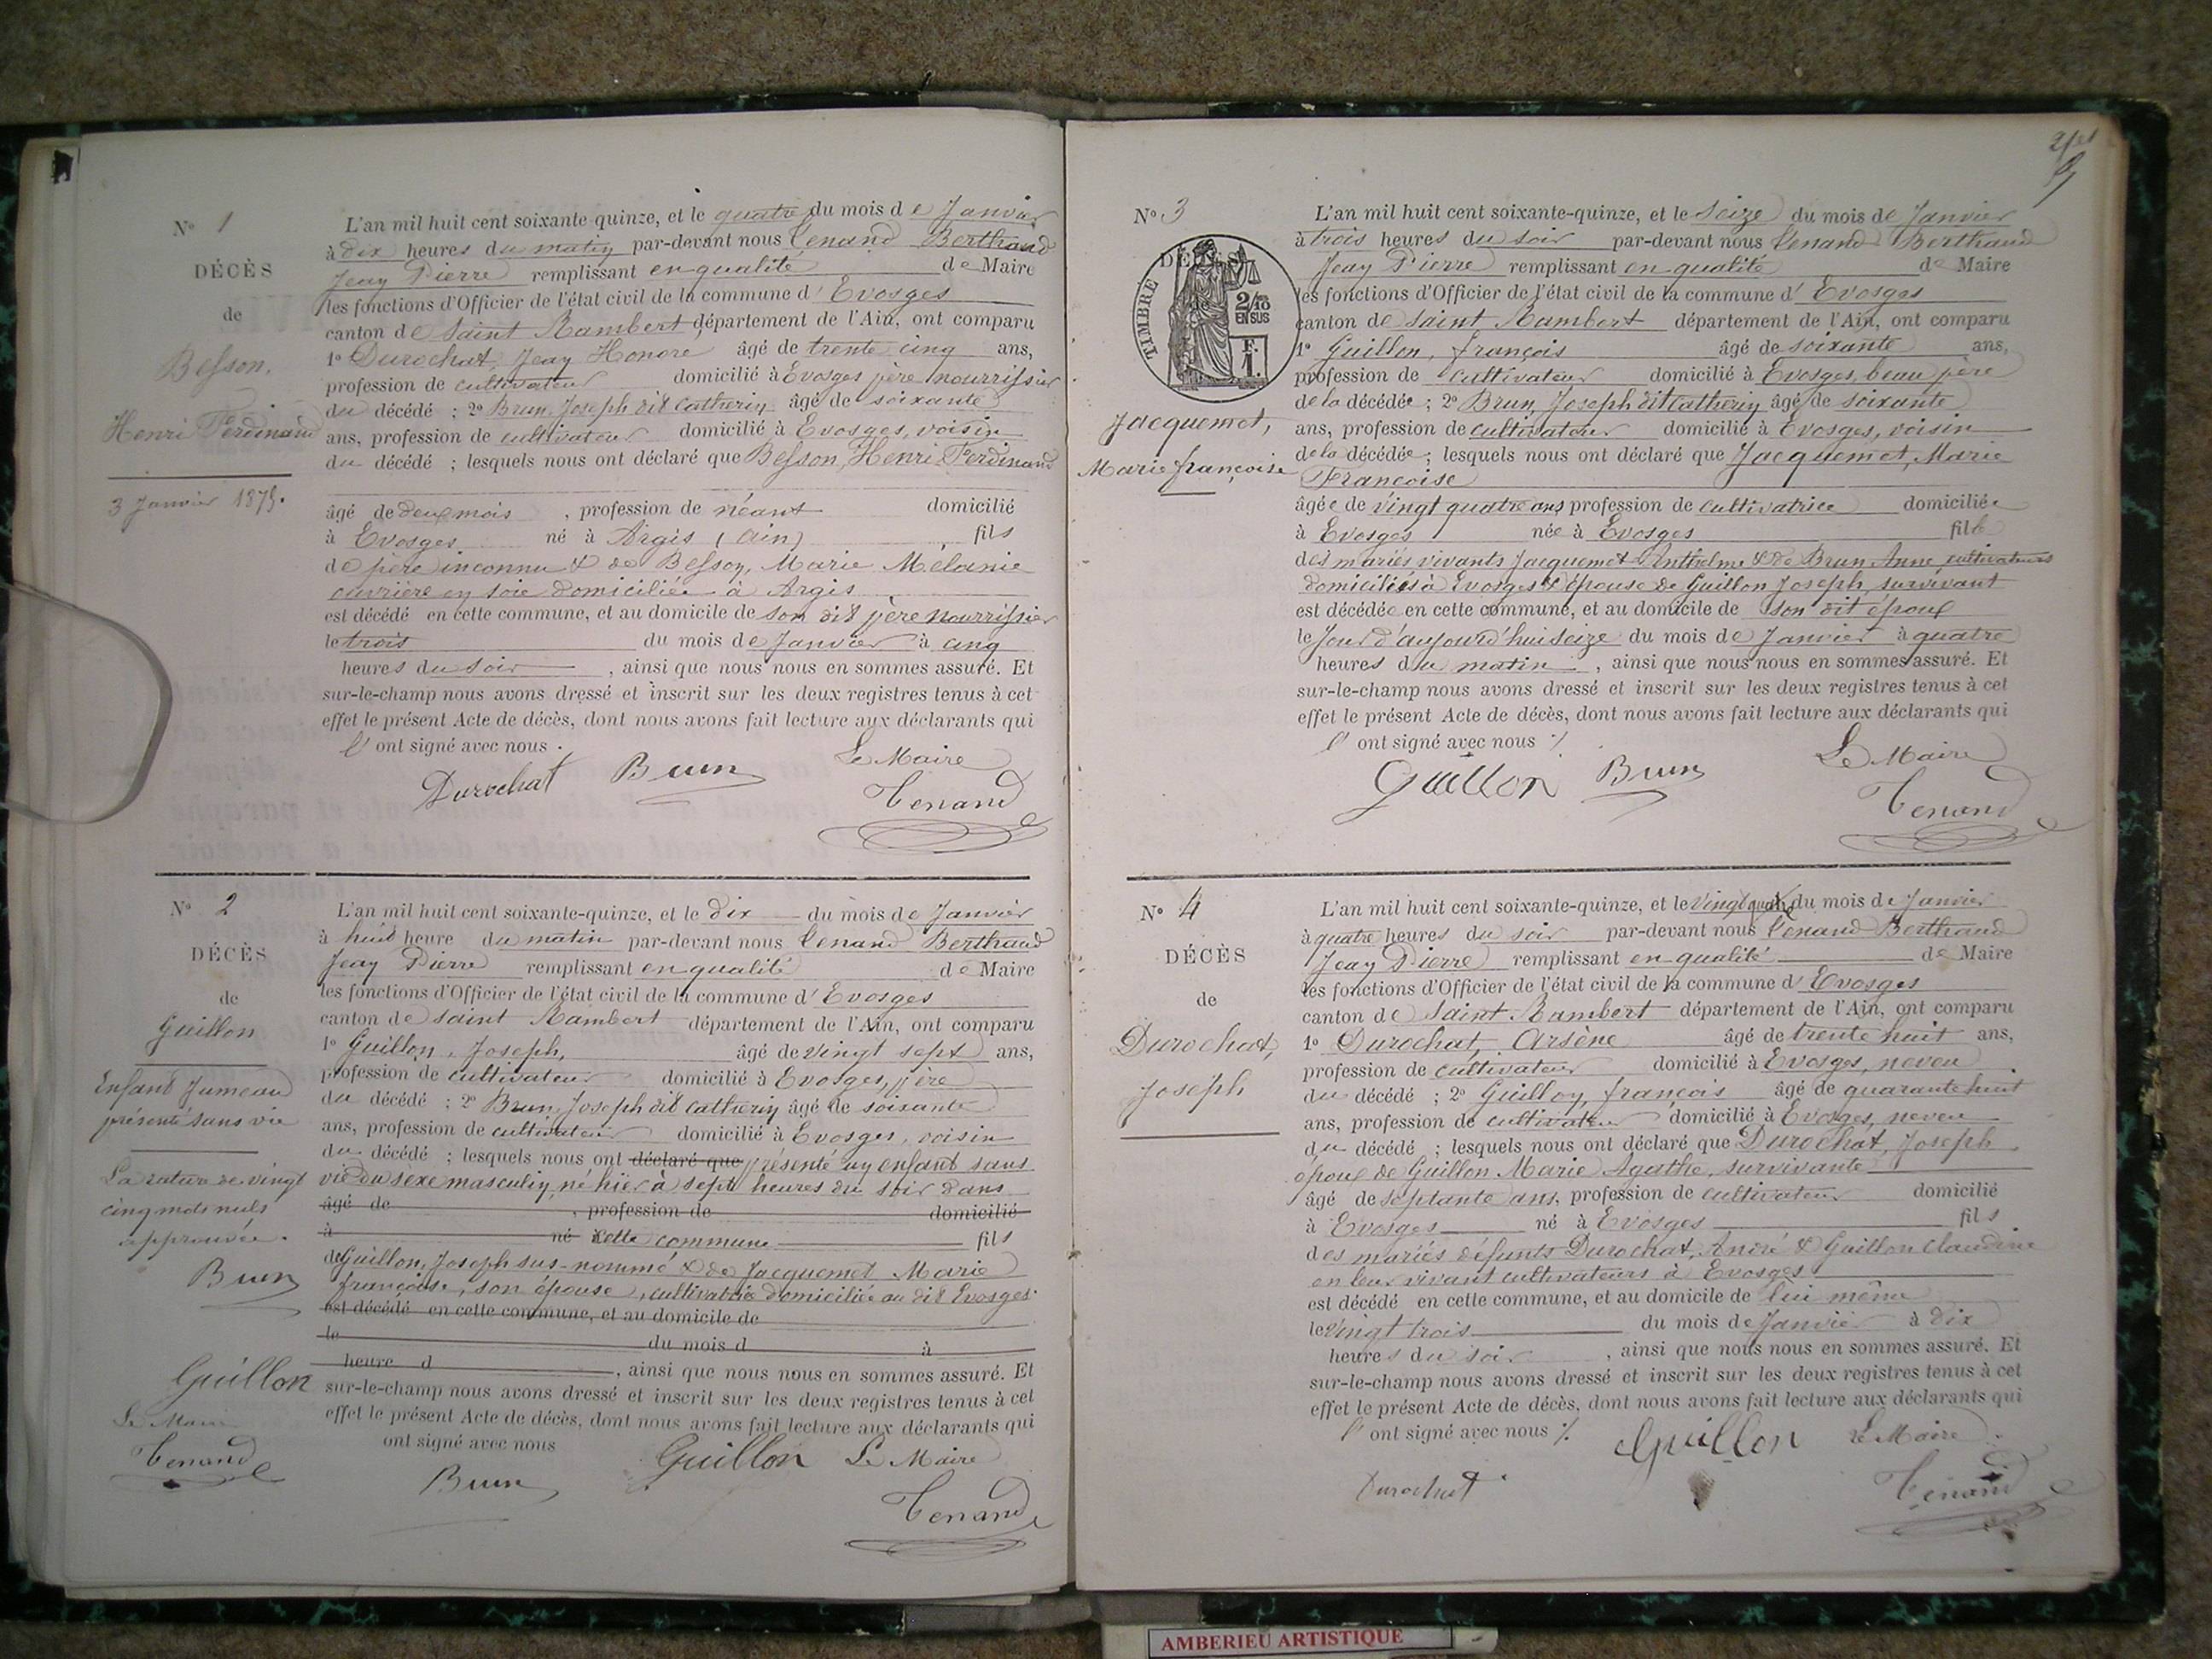 N° 1
DÉCÈS
de
Besson,
Henri Ferdinand
3 Janvier 1875.
L'an mil huit cent soixante-quinze, et le quatre du mois de Janvier
à dix heures du matin par-devant nous Tenand Berthand
Jean Pierre remplissant en qualité de Maire
les fonctions d'Officier de l'état civil de la commune d'Evosges
canton de Saint Rambert département de l'Ain, ont comparu
1° Durochat, Jean Honoré âgé de trente cinq ans,
profession de cultivateur domicilié à Evosges père nourrissier
du décédé ; 2° Brun, Joseph dit Catherin âgé de soixante
ans, profession de cultivateur domicilié à Evosges, voisin
du décédé ; lesquels nous ont déclaré que Besson, Henri Ferdinand
âgé de deux mois , profession de néant domicilié
à Evosges né à Argis (Ain) fils
de père inconnu & de Besson, Marie Mélanie
ouvrière en soie domiciliée à Argis
est décédé en cette commune, et au domicile de son dit père nourrissier
le trois du mois de Janvier à cinq
heures du soir , ainsi que nous nous en sommes assuré. Et
sur-le-champ nous avons dressé et inscrit sur les deux registres tenus à cet
effet le présent Acte de décès, dont nous avons fait lecture aux déclarants qui
l'ont signé avec nous.
Durochat Brun Le Maire
Tenand
N° 2
DÉCÈS
de
Guillon
Enfant Jumeau
présenté sans vie
La rature de vingt
cinq mots nuls
approuvée.
Brun
Guillon
Le Maire
Tenand
L'an mil huit cent soixante-quinze, et le dix du mois de Janvier
à huit heure du matin par-devant nous Tenand Berthand
Jean Pierre remplissant en qualité de Maire
les fonctions d'Officier de l'état civil de la commune d'Evosges
canton de Saint Rambert département de l'Ain, ont comparu
1° Guillon, Joseph, âgé de vingt sept ans,
profession de cultivateur domicilié à Evosges, père
du décédé ; 2° Brun, Joseph dit Catherin âgé de soixante
ans, profession de cultivateur domicilié à Evosges, voisin
du décédé ; lesquels nous ont déclaré que présenté un enfant sans
vie du sèxe masculin, né hier à sept heures du soir dans
âgé de , profession de domicilié
à né cette commune fils
de Guillon, Joseph sus-nommé & de Jacquemet Marie
françoise, son épouse, cultivatrice domiciliée au dit Evosges.
est décédé en cette commune, et au domicile de
le du mois d à
heure d , ainsi que nous nous en sommes assuré. Et
sur-le-champ nous avons dressé et inscrit sur les deux registres tenus à cet
effet le présent Acte de décès, dont nous avons fait lecture aux déclarants qui
ont signé avec nous
Brun Guillon Le Maire
Tenand
N° 3
DÉCÈS
TIMBRE
2/10 EN SUS
F. 1.
Jacquemet,
Marie françoise
L'an mil huit cent soixante-quinze, et le Seize du mois de Janvier
à trois heures du soir par-devant nous Tenand Berthand
Jean Pierre remplissant en qualité de Maire
les fonctions d'Officier de l'état civil de la commune d'Evosges
canton de Saint Rambert département de l'Ain, ont comparu
1° Guillon, François âgé de soixante ans,
profession de cultivateur domicilié à Evosges, beau père
de la décédée ; 2° Brun, Joseph dit Catherin âgé de soixante
ans, profession de cultivateur domicilié à Evosges, voisin
de la décédée ; lesquels nous ont déclaré que Jacquemet, Marie
Francoise
âgée de vingt quatre ans profession de cultivatrice domiciliée
à Evosges née à Evosges fille
des mariés vivants Jacquemet Anthelme & de Brun Anne cultivateurs
domiciliés à Evosges & épouse de Guillon Joseph, survivant
est décédée en cette commune, et au domicile de son dit époux
le Jour d'aujourd'hui seize du mois de Janvier à quatre
heures du matin , ainsi que nous nous en sommes assuré. Et
sur-le-champ nous avons dressé et inscrit sur les deux registres tenus à cet
effet le présent Acte de décès, dont nous avons fait lecture aux déclarants qui
l'ont signé avec nous ./
Guillon Brun Le Maire
Tenand
N° 4
DÉCÈS
de
Durochat,
Joseph
L'an mil huit cent soixante-quinze, et le vingt quatre du mois de Janvier
à quatre heures du soir par-devant nous Tenand Berthand
Jean Pierre remplissant en qualité de Maire
les fonctions d'Officier de l'état civil de la commune d'Evosges
canton de Saint Rambert département de l'Ain, ont comparu
1° Durochat, Arsène âgé de trente huit ans,
profession de cultivateur domicilié à Evosges, neveu
du décédé ; 2° Guillon, françois âgé de quarante huit
ans, profession de cultivateur domicilié à Evosges, neveu
du décédé ; lesquels nous ont déclaré que Durochat, Joseph
époux de Guillon Marie Agathe, survivante
âgé de septante ans, profession de cultivateur domicilié
à Evosges né à Evosges fils
des mariés défunts Durochat, André & Guillon Claudine
en leur vivant cultivateurs à Evosges
est décédé en cette commune, et au domicile de lui même
le vingt trois du mois de Janvier à dix
heures du soir , ainsi que nous nous en sommes assuré. Et
sur-le-champ nous avons dressé et inscrit sur les deux registres tenus à cet
effet le présent Acte de décès, dont nous avons fait lecture aux déclarants qui
l'ont signé avec nous ./.
Guillon Le Maire
Durochat Tenand
AMBERIEU ARTISTIQUE